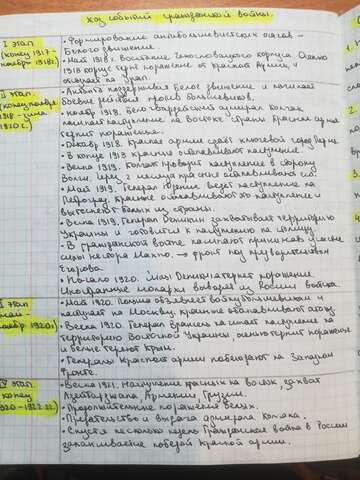 Ход событий гражданской войны.
I этап
(конец 1917-
ноябрь 1918г.)
• Формирование антибольшевистских очагов -
Белого движения.
• Май 1918 г. Восстание Чехословацкого корпуса. Однако
1918 корпус терпит поражение от Красной Армии и
отходит на Урал.
II этап
(конец ноября
1918 - зима
1920г.)
• Антанта поддерживая Белое движение и начинает
боевые действия против большевиков.
• Ноябрь 1918.
наступление на востоке страны. Красная армия
терпит поражение.
• Декабрь 1918. Красная армия сдаёт ключевой город Пермь.
• В конце 1918 красные останавливают наступление.
• Весна 1919. Колчак проводит наступление в сторону
Волги. Через 2 месяца красные останавливают его.
• Май 1919. Генерал Юденич ведёт наступление на
Петроград, красные останавливают это наступление и
вытесняют белых из страны.
• Весна 1919. Генерал Деникин захватывает территорию
Украины и готовится к наступлению на столицу.
- В гражданской войне начинают принимать участие
силы Нестора Махно. → фронт под предводительством
Егорова.
• Начало 1920. Деникина терпит поражение.
Иностранные монархи выводят из России войска.
III этап
(май -
ноябрь 1920г.)
• Май 1920. Польша объявляет войну большевикам и
наступает на Москву, красные останавливают атаку.
• Весна 1920. Генерал Врангель начинает наступление на
территорию Восточной Украины, осенью терпит поражение
и белые теряют Крым.
• Генералы Красной армии побеждают на Западном
фронте.
IV этап
(конец
1920 - 1922гг.)
• Весна 1921. Наступление красных на восток, захват
Азербайджана, Армении, Грузии.
• Продолжительные поражения белых.
• Предательство и выдача адмирала Колчака.
• Спустя несколько недель Гражданская война в России
заканчивается победой Красной армии.